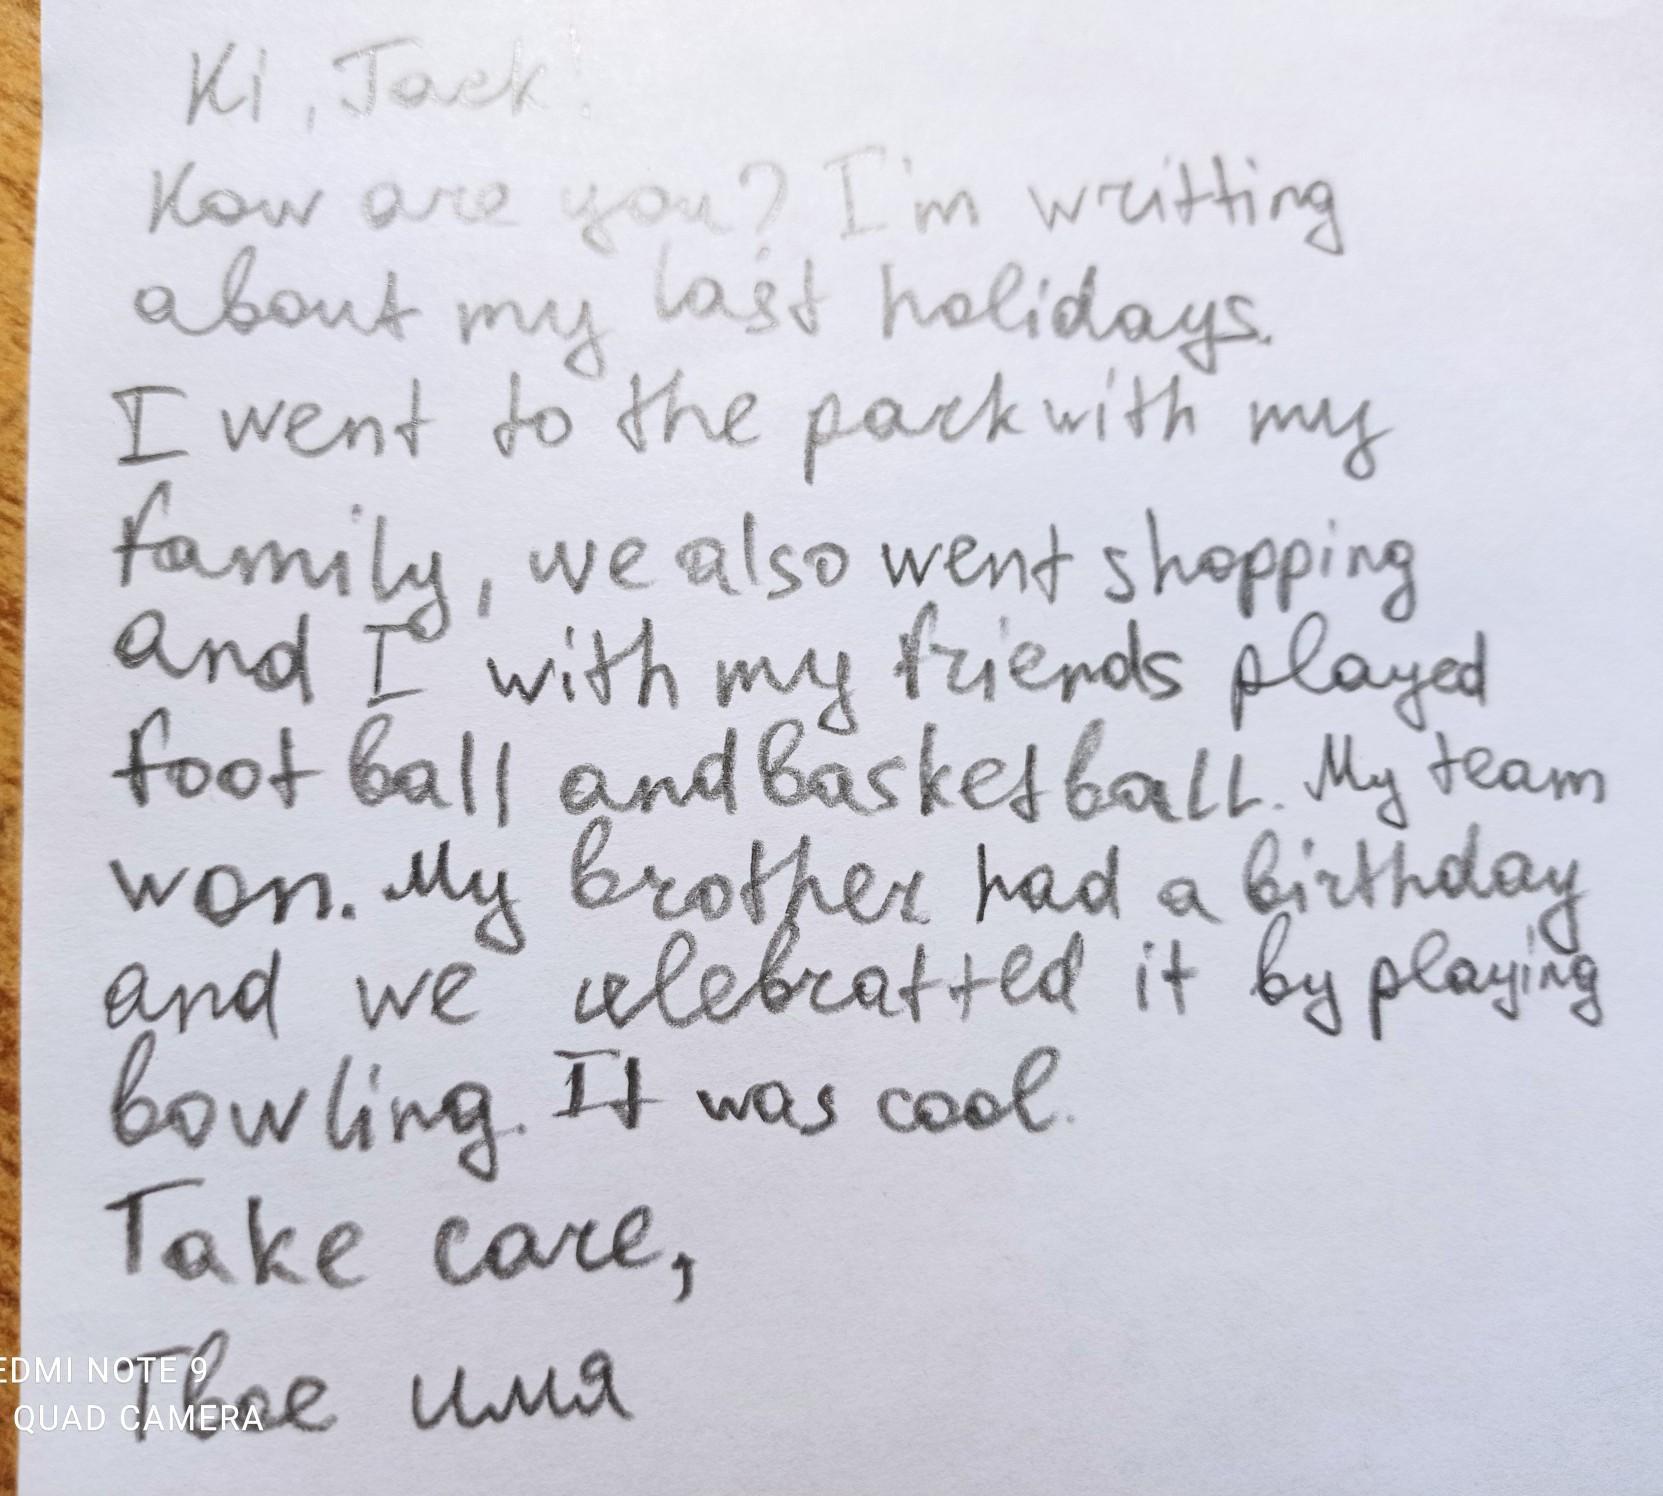 Hi, Jack!
How are you? I'm writting
about my last holidays.
I went to the park with my
family, we also went shopping
and I with my friends played
foot ball and basketball. My team
won. My brother had a birthday
and we celebratted it by playing
bowling. It was cool.
Take care,
Твое имя
EDMI NOTE 9
QUAD CAMERA